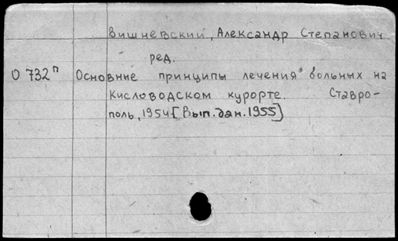 Вишневский, Александр Степанович
ред.
О 732п Основние принципы лечения больных на
Кисловодском курорте. Ставро-
поль, 1954 [Вып. дан. 1955]